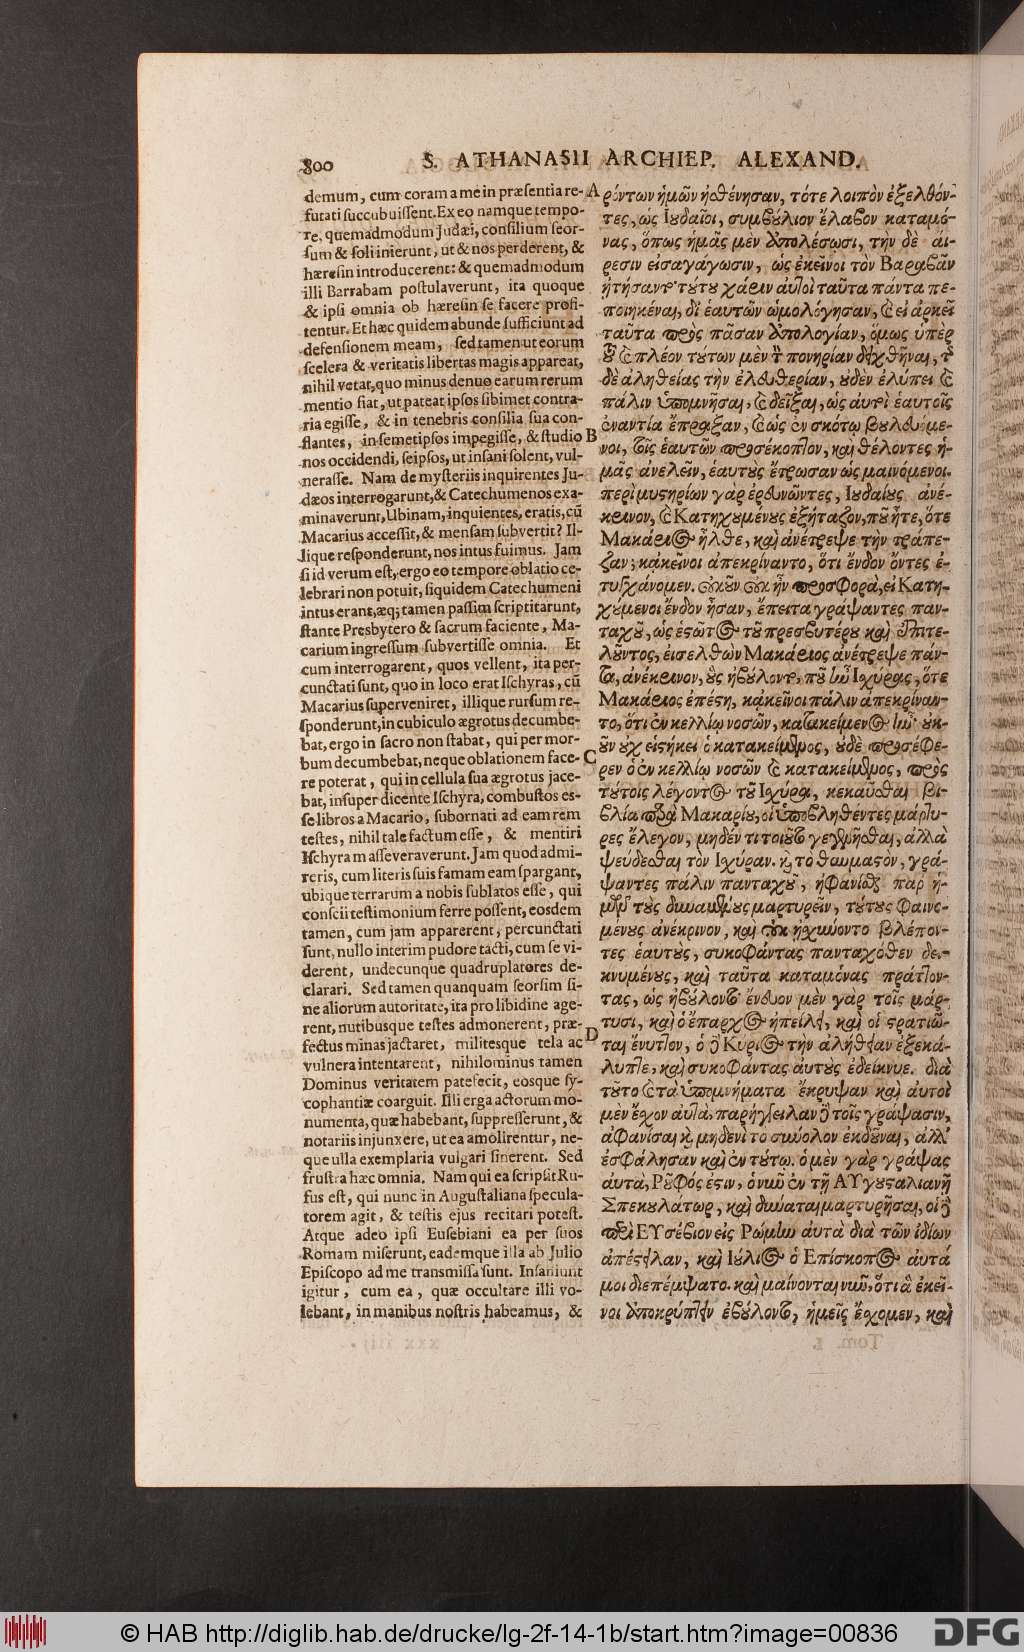 800
S. ATHANASII ARCHIEP. ALEXAND.
demum, cum coram a me in præsentia re-
futati succubuissent. Ex eo namque tempo-
re, quemadmodum Judæi, consilium seor-
sum & soli inierunt, ut & nos perderent, &
hæresin introducerent: & quemadmodum
illi Barrabam postulaverunt, ita quoque
& ipsi omnia ob hæresin se facere profi-
tentur. Et hæc quidem abunde sufficiunt ad
defensionem meam, sed tamen ut eorum
scelera & veritatis libertas magis appareat,
nihil vetat, quo minus denuo earum rerum
mentio fiat, ut pateat ipsos sibimet contra-
ria egisse, & in tenebris consilia sua con-
flantes, in semetipsos impegisse, & studio
nos occidendi, seipsos, ut insani solent, vul-
nerasse. Nam de mysteriis inquirentes Ju-
dæos interrogarunt, & Catechumenos exa-
minaverunt, Ubinam, inquientes, eratis, cũ
Macarius accessit, & mensam subvertit? Il-
lique responderunt, nos intus fuimus. Jam
si id verum est, ergo eo tempore oblatio ce-
lebrari non potuit, siquidem Catechumeni
intus erant, æq; tamen passim scriptitarunt,
stante Presbytero & sacrum faciente, Ma-
carium ingressum subvertisse omnia. Et
cum interrogarent, quos vellent, ita per-
cunctati sunt, quo in loco erat Ischyras, cũ
Macarius superveniret, illique rursum re-
sponderunt, in cubiculo ægrotus decumbe-
bat, ergo in sacro non stabat, qui per mor-
bum decumbebat, neque oblationem face-
re poterat, qui in cellula sua ægrotus jace-
bat, insuper dicente Ischyra, combustos es-
se libros a Macario, subornati ad eam rem
testes, nihil tale factum esse, & mentiri
Ischyram asseveraverunt. Jam quod admi-
reris, cum literis suis famam eam spargant,
ubique terrarum a nobis sublatos esse, qui
conscii testimonium ferre possent, eosdem
tamen, cum jam apparerent, percunctati
sunt, nullo interim pudore tacti, cum se vi-
derent, undecunque quadruplatores de-
clarari. Sed tamen quanquam seorsim si-
ne aliorum autoritate, ita pro libidine age-
rent, nutibusque testes admonerent, præ-
fectus minas jactaret, militesque tela ac
vulnera intentarent, nihilominus tamen
Dominus veritatem patefecit, eosque sy-
cophantiæ coarguit. Illi erga actorum mo-
numenta, quæ habebant, suppresserunt, &
notariis injunxere, ut ea amolirentur, ne-
que ulla exemplaria vulgari sinerent. Sed
frustra hæc omnia. Nam qui ea scripsit Ru-
fus est, qui nunc in Augustaliana specula-
torem agit, & testis ejus recitari potest.
Atque adeo ipsi Eusebiani ea per suos
Romam miserunt, eademque illa ab Julio
Episcopo ad me transmissa sunt. Insaniunt
igitur, cum ea, quæ occultare illi vo-
lebant, in manibus nostris habeamus, &
A
B
C
D
ρόντων ἡμῶν ἠσθένησαν, τότε λοιπὸν ἐξελθόν-
τες, ὡς Ἰουδαῖοι, συμβούλιον ἔλαβον καταμό-
νας, ὅπως ἡμᾶς μὲν ἀπολέσωσι, τὴν δὲ αἵ-
ρεσιν εἰσαγάγωσιν, ὡς ἐκεῖνοι τὸν Βαραββᾶν
ᾐτήσαντο· τούτου χάριν αὐτοὶ ταῦτα πάντα πε-
ποιηκέναι, δι' ἑαυτῶν ὡμολόγησαν, καὶ εἰ ἀρκεῖ
ταῦτα πρὸς πᾶσαν ἀπολογίαν, ὅμως ὑπὲρ
τοῦ καὶ πλέον τούτων μὲν τὴν πονηρίαν δειχθῆναι, τῆς
δὲ ἀληθείας τὴν ἐλευθερίαν, οὐδὲν ἐλύπει καὶ
πάλιν ὑπομνῆσαι, καὶ δεῖξαι, ὡς αὐτοὶ ἑαυτοῖς
ἐναντία ἔπραξαν, καὶ ὡς ἐν σκότῳ βουλευόμε-
νοι, τοῖς ἑαυτῶν προσέκοπτον, καὶ θέλοντες ἡ-
μᾶς ἀνελεῖν, ἑαυτοὺς ἔτρωσαν ὡς μαινόμενοι.
περὶ μυστηρίων γὰρ ἐρευνῶντες, Ἰουδαίους ἀνέ-
κρινον, καὶ Κατηχουμένους ἐξήταζον, ποῦ ἦτε, ὅτε
Μακάριος ἦλθε, καὶ ἀνέτρεψε τὴν τράπε-
ζαν; κἀκεῖνοι ἀπεκρίναντο, ὅτι ἔνδον ὄντες ἐ-
τυγχάνομεν. οὐκοῦν οὐκ ἦν προσφορὰ, εἰ Κατη-
χούμενοι ἔνδον ἦσαν, ἔπειτα γράψαντες παν-
ταχοῦ, ὡς ἑστῶτος τοῦ πρεσβυτέρου καὶ ἐπιτε-
λοῦντος, εἰσελθὼν Μακάριος ἀνέτρεψε πάν-
τα, ἀνέκρινον, οὓς ἠβούλοντο, ποῦ ἦν Ἰσχύρας, ὅτε
Μακάριος ἐπέστη, κἀκεῖνοι πάλιν ἀπεκρίναν-
το, ὅτι ἐν κελλίῳ νοσῶν, κατακείμενος ἦν· οὐκ-
οῦν οὐχ εἱστήκει ὁ κατακείμενος, οὐδὲ προσέφε-
ρεν ὁ ἐν κελλίῳ νοσῶν καὶ κατακείμενος, πρὸς
τούτοις λέγοντος τοῦ Ἰσχύρα, κεκαῦσθαι βι-
βλία παρὰ Μακαρίου, οἱ ὑποβληθέντες μάρτυ-
ρες ἔλεγον, μηδέν τι τοιοῦτο γεγενῆσθαι, ἀλλὰ
ψεύδεσθαι τὸν Ἰσχύραν. καὶ τὸ θαυμαστὸν, γρά-
ψαντες πάλιν πανταχοῦ, ἠφανίσθαι παρ' ἡ-
μῶν τοὺς δυναμένους μαρτυρεῖν, τούτους φαινο-
μένους ἀνέκρινον, καὶ οὐκ ᾐσχύνοντο βλέπον-
τες ἑαυτοὺς, συκοφάντας πανταχόθεν δει-
κνυμένους, καὶ ταῦτα καταμόνας πράττον-
τας, ὡς ἠβούλοντο ἔνευον μὲν γὰρ τοῖς μάρ-
τυσι, καὶ ὁ ἔπαρχος ἠπείλει, καὶ οἱ στρατιῶ-
ται ἔνυττον, ὁ δὲ Κύριος τὴν ἀλήθειαν ἐξεκά-
λυπτε, καὶ συκοφάντας αὐτοὺς ἐδείκνυε. διὰ
τοῦτο καὶ τὰ ὑπομνήματα ἔκρυψαν καὶ αὐτοὶ
μὲν ἔχον αὐτὰ, παρήγγειλαν δὲ τοῖς γράψασιν,
ἀφανίσαι καὶ μηδενὶ τὸ σύνολον ἐκδοῦναι, ἀλλ'
ἐσφάλησαν καὶ ἐν τούτῳ. ὁ μὲν γὰρ γράψας
αὐτὰ, Ῥοῦφός ἐστιν, ὁ νῦν ἐν τῇ Αὐγουσταλιανῇ
Σπεκουλάτωρ, καὶ δύναται μαρτυρῆσαι, οἱ δὲ
περὶ Εὐσέβιον εἰς Ῥώμην αὐτὰ διὰ τῶν ἰδίων
ἀπέστειλαν, καὶ Ἰούλιος ὁ Ἐπίσκοπος αὐτά
μοι διεπέμψατο. καὶ μαίνονται νῦν, ὅτι ἃ ἐκεῖ-
νοι ἀποκρύπτειν ἐβούλοντο, ἡμεῖς ἔχομεν, καὶ
© HAB http://diglib.hab.de/drucke/lg-2f-14-1b/start.htm?image=00836
DFG